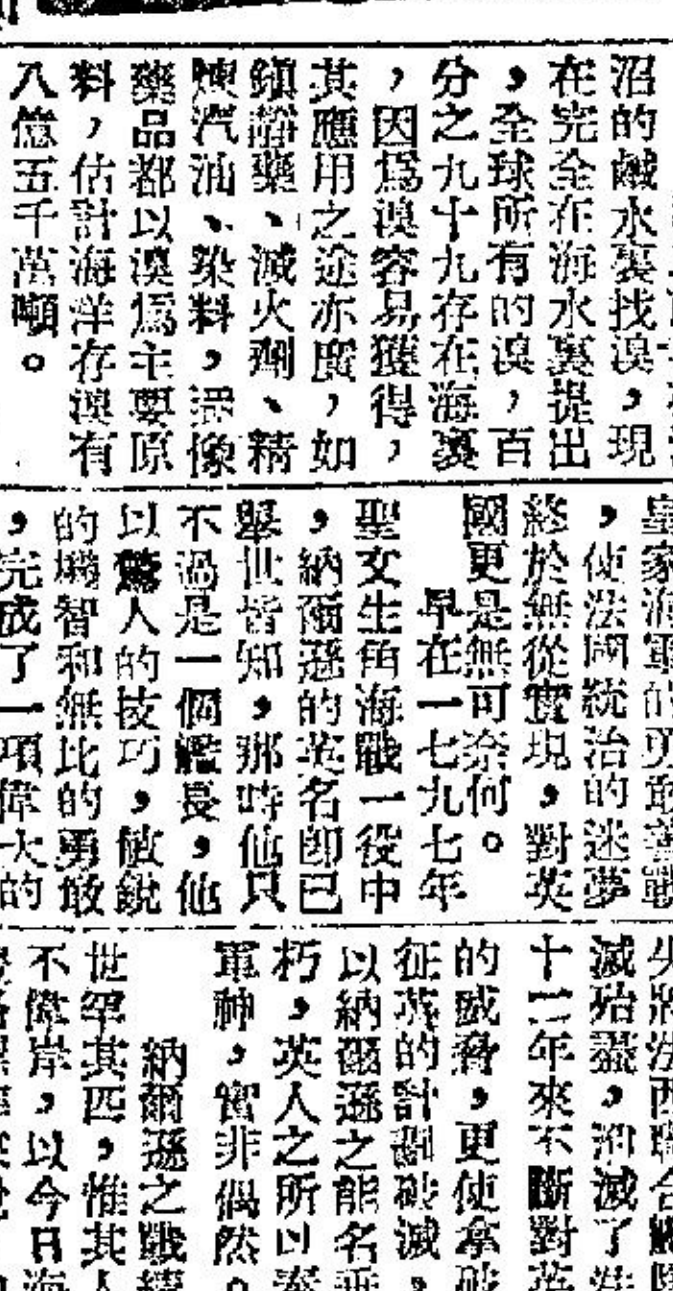 沼的鹹水裏找溴，現
在完全在海水裏提出
，全球所有的溴，百
分之九十九存在海裏
，因爲溴容易獲得，
其應用之途亦廣，如
鎮靜藥、滅火劑、精
煉汽油、染料，攝像
藥品都以溴爲主要原
料，估計海洋存溴有
八億五千萬噸。
皇家海軍的勇敢善戰
，使法國統治的迷夢
終於無從實現，對英
國更是無可奈何。
早在一七九七年
聖文生角海戰一役中
，納爾遜的英名即已
舉世皆知，那時他只
不過是一個艦長，他
以驚人的技巧，敏銳
的機智和無比的勇敢
，完成了一項偉大的
滅殆盡，消滅了法
十二年來不斷對英
的威脅，更使拿破
征英的計劃破滅，
以納爾遜之能名垂
朽，英人之所以奉
軍神，實非偶然。
納爾遜之戰績
世罕其匹，惟其人
不偉岸，以今日海